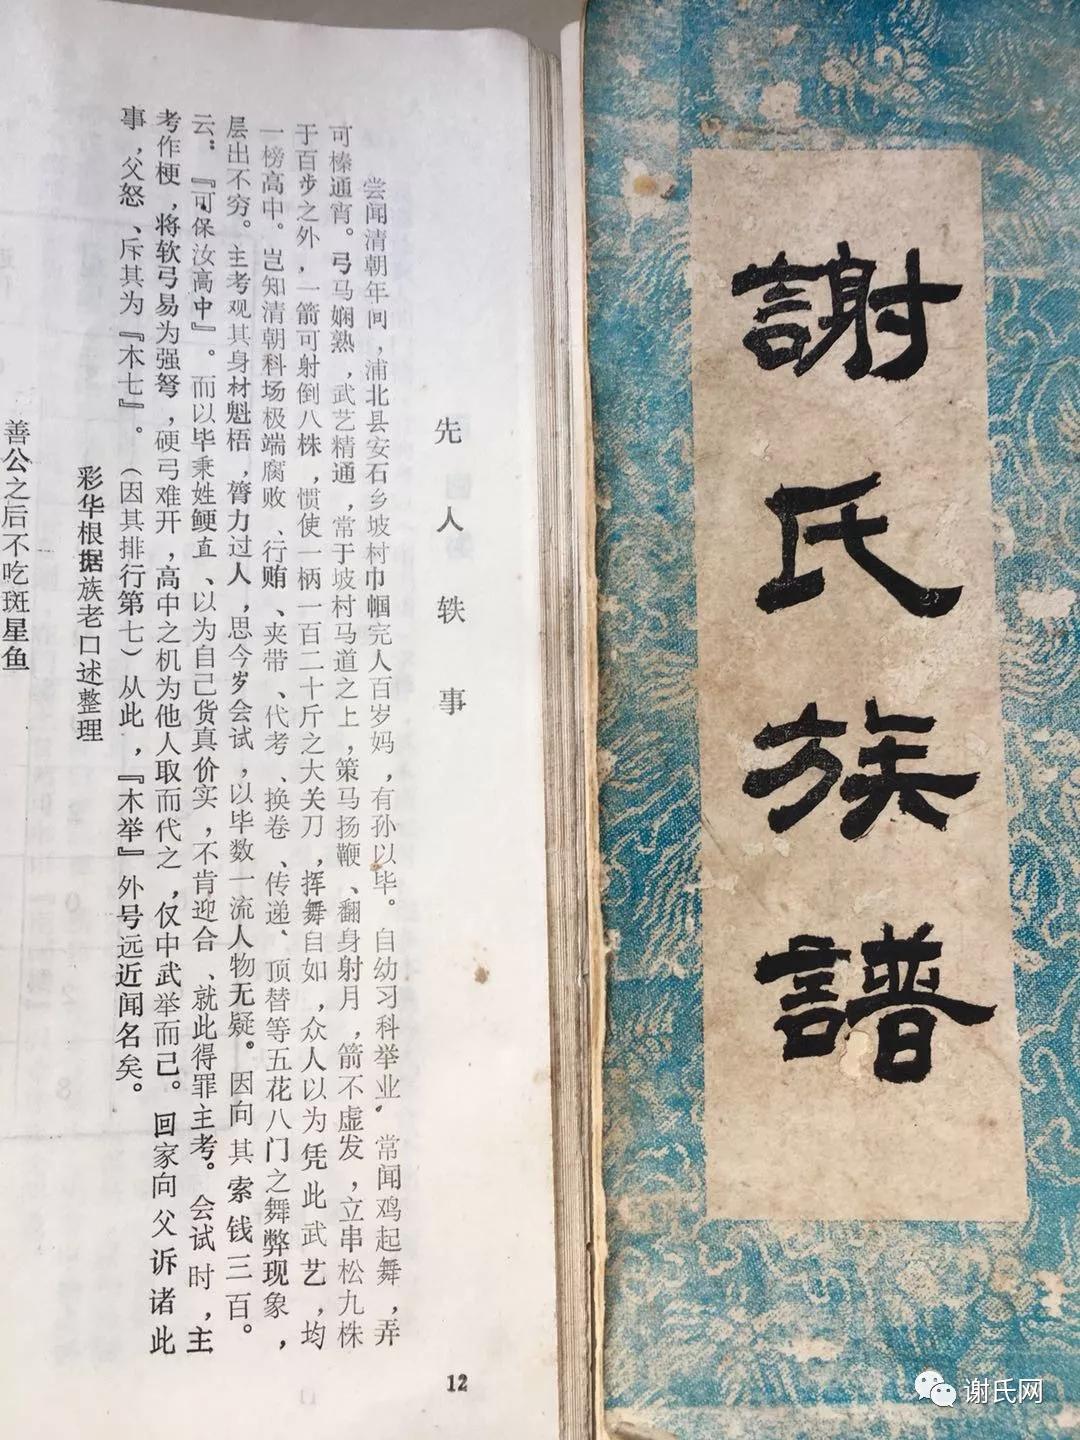 謝氏族譜
先人轶事
尝闻清朝年间，浦北县安石乡坡村巾帼完人百岁妈，有孙以毕。自幼习科举业，常闻鸡起舞，弄
可榛通宵。弓马娴熟，武艺精通，常于坡村马道之上，策马扬鞭、翻身射月，箭不虚发，立串松九株
于百步之外，一箭可射倒八株，惯使一柄一百二十斤之大关刀，挥舞自如，众人以为凭此武艺，均
一榜高中。岂知清朝科场极端腐败、行贿、夹带、代考、换卷、传递、顶替等五花八门之舞弊现象，
层出不穷。主考观其身材魁梧，膂力过人，思今岁会试，以毕数一流人物无疑。因向其索钱三百。
云：『可保汝高中』。而以毕秉姓鲠直、以为自己货真价实，不肯迎合、就此得罪主考。会试时，主
考作梗，将软弓易为强弩，硬弓难开，高中之机为他人取而代之，仅中武举而己。回家向父诉诸此
事，父怒、斥其为『木七』。（因其排行第七）从此，『木举』外号远近闻名矣。
彩华根据族老口述整理
善公之后不吃斑星鱼
12
谢氏网